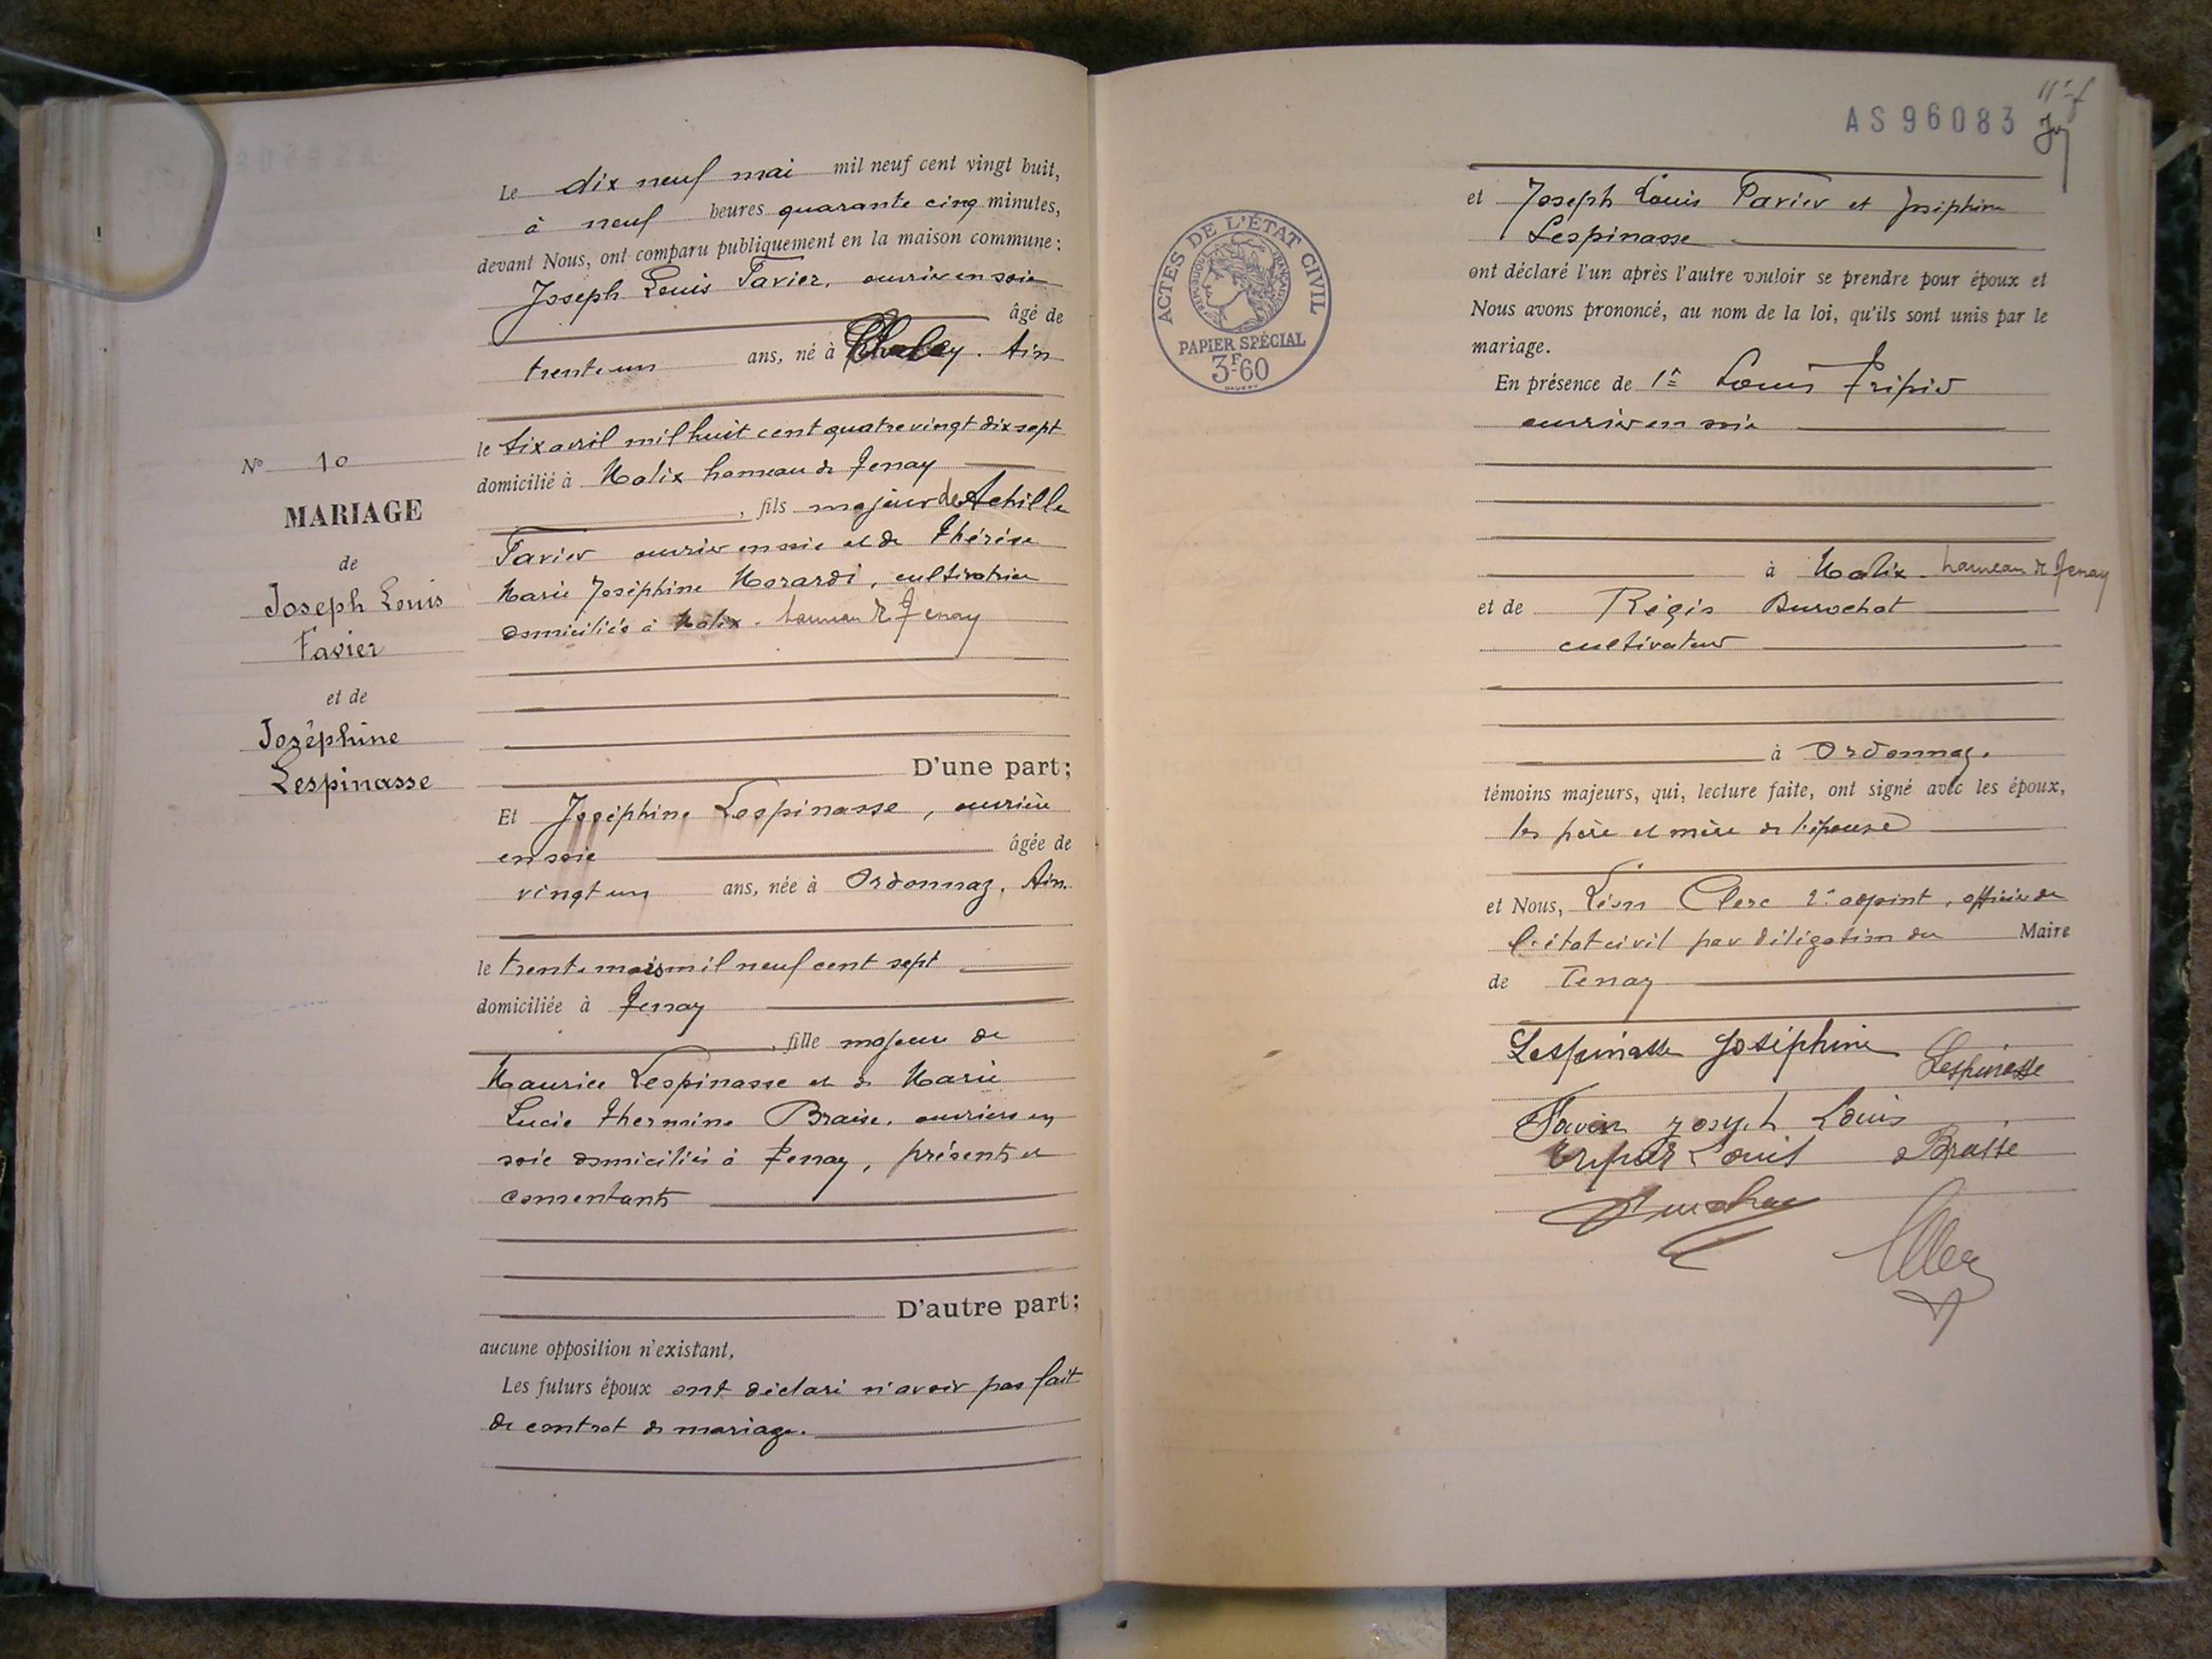 Le dix neuf mai mil neuf cent vingt huit,
à neuf heures quarante cinq minutes,
devant Nous, ont comparu publiquement en la maison commune :
Joseph Louis Favier, ouvrier en soie
âgé de
trente un ans, né à Chaley. Ain
le six avril mil huit cent quatre vingt dix sept
domicilié à Malix hameau de Tenay
, fils majeur de Achille
Favier ouvrier en soie et de Thérèse
Marie Joséphine Morardi, cultivatrice
domiciliés à Malix. hameau de Tenay
D'une part;
Et Joséphine Lespinasse, ouvrière
en soie âgée de
vingt un ans, née à Ordonnaz, Ain.
le trente mars mil neuf cent sept
domiciliée à Tenay
, fille majeure de
Maurice Lespinasse et de Marie
Lucie Thermine Braise, ouvriers en
soie domiciliés à Tenay, présents et
consentants
D'autre part;
aucune opposition n'existant,
Les futurs époux ont déclaré n'avoir pas fait
de contrat de mariage.
N° 10
MARIAGE
de
Joseph Louis
Favier
et de
Joséphine
Lespinasse
AS 96083
ACTES DE L'ÉTAT CIVIL
RÉPUBLIQUE FRANÇAISE
PAPIER SPÉCIAL
3F60
et Joseph Louis Favier et Joséphine
Lespinasse
ont déclaré l'un après l'autre vouloir se prendre pour époux et
Nous avons prononcé, au nom de la loi, qu'ils sont unis par le
mariage.
En présence de 1° Louis Tripier
ouvrier en soie
à Malix. hameau de Tenay
et de Régis Burochat
cultivateur
à Ordonnaz.
témoins majeurs, qui, lecture faite, ont signé avec les époux,
les père et mère de l'épouse
et Nous, Léon Clerc 2e adjoint, officier de
l'état civil par délégation du Maire
de Tenay
Lespinasse Joséphine Lespinasse
Favier Joseph Louis
Tripier Louis Braise